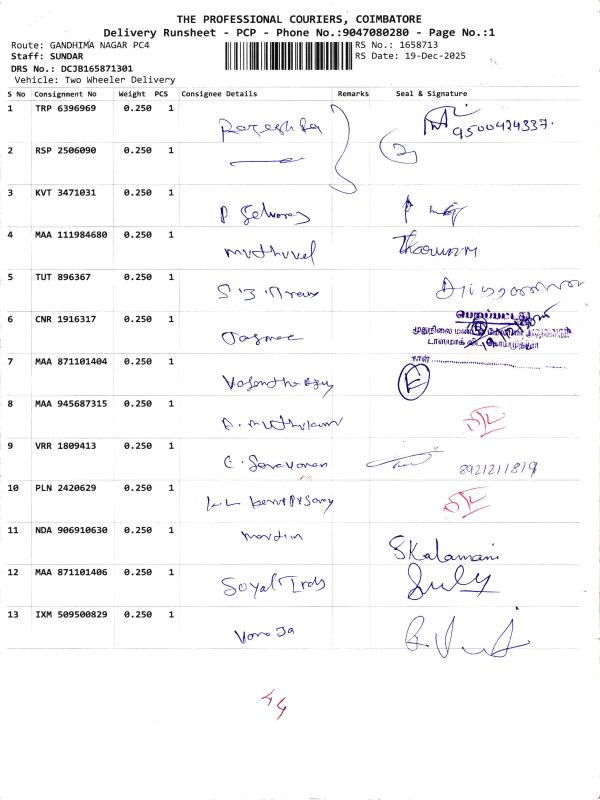 THE PROFESSIONAL COURIERS, COIMBATORE
Delivery Runsheet - PCP - Phone No.:9047080280 - Page No.:1
Route: GANDHIMA NAGAR PC4
RS No.: 1658713
Staff: SUNDAR
RS Date: 19-Dec-2025
DRS No.: DCJB165871301
Vehicle: Two Wheeler Delivery
S No Consignment No Weight PCS Consignee Details Remarks Seal & Signature
1 TRP 6396969 0.250 1
9500424337.
2 RSP 2506090 0.250 1
3 KVT 3471031 0.250 1
P Selvaraj
4 MAA 111984680 0.250 1
muthuvel Tharun M
5 TUT 896367 0.250 1
6 CNR 1916317 0.250 1
Tasmac
பெறப்பட்டது
நாள்
7 MAA 871101404 0.250 1
E
8 MAA 945687315 0.250 1
A. Muthukumar
9 VRR 1809413 0.250 1
C. Saravanan 8921211819
10 PLN 2420629 0.250 1
11 NDA 906910630 0.250 1
martin SKalamani
12 MAA 871101406 0.250 1
July
13 IXM 509500829 0.250 1
44